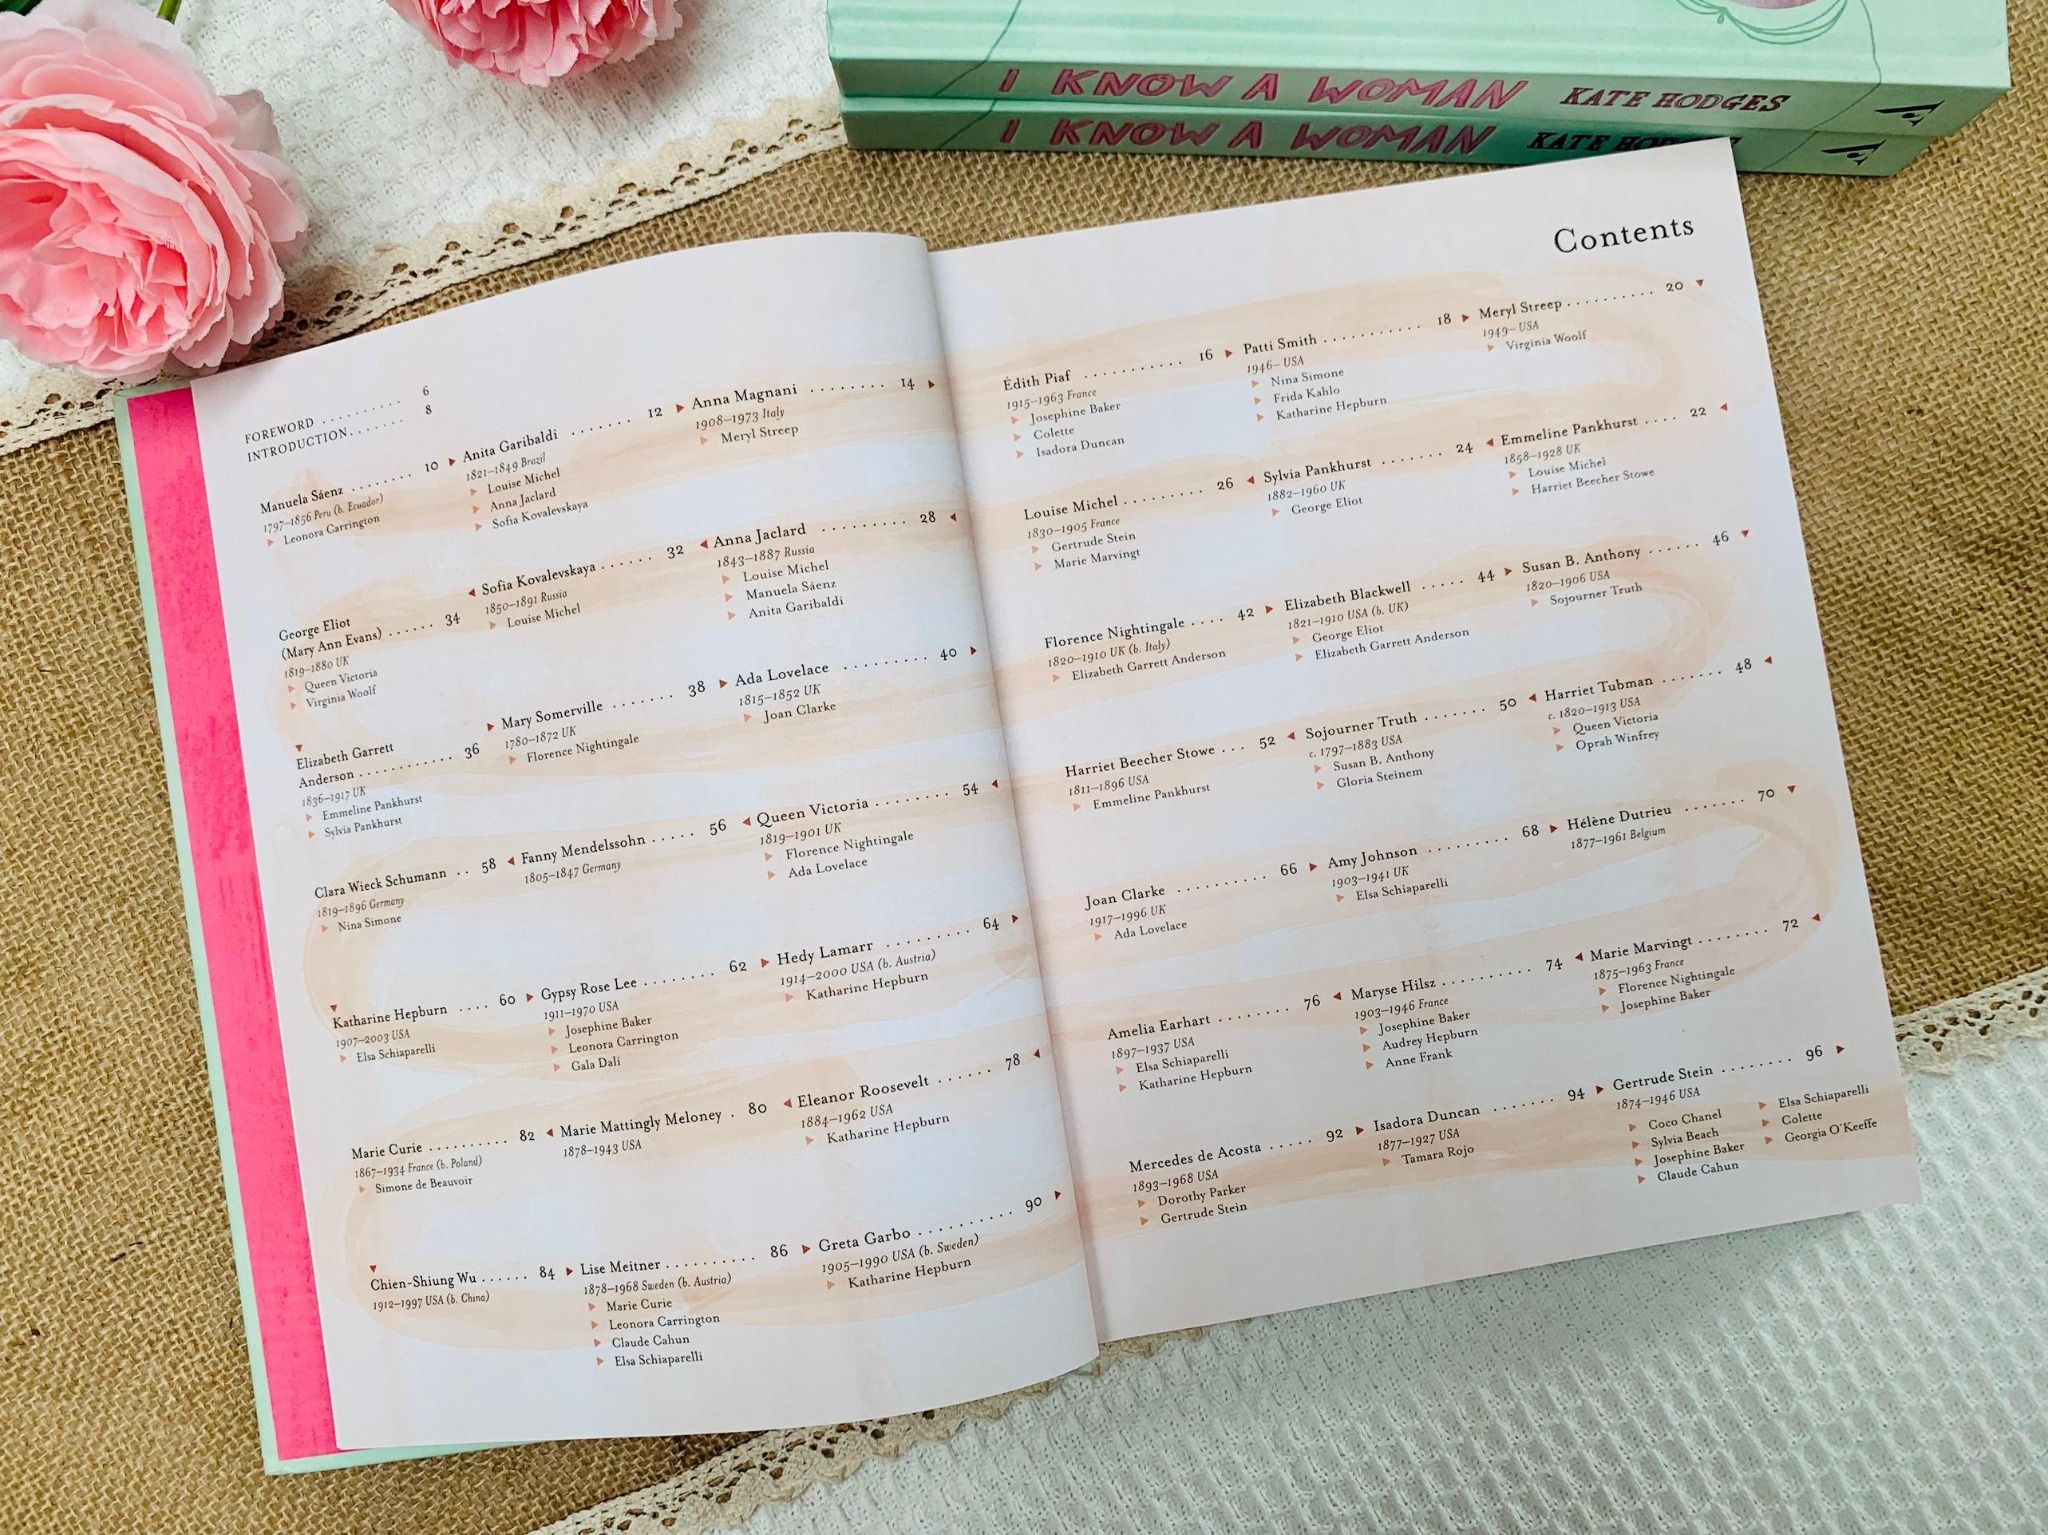 I KNOW A WOMAN KATE HODGES
I KNOW A WOMAN KATE
Contents
FOREWORD .......... 6
INTRODUCTION....... 8
Manuela Sáenz ........ 10
1797–1856 Peru (b. Ecuador)
Leonora Carrington
Anita Garibaldi ........ 12
1821–1849 Brazil
Louise Michel
Anna Jaclard
Sofia Kovalevskaya
Anna Magnani ........ 14
1908–1973 Italy
Meryl Streep
Édith Piaf ........... 16
1915–1963 France
Josephine Baker
Colette
Isadora Duncan
Patti Smith ........... 18
1946– USA
Nina Simone
Frida Kahlo
Katharine Hepburn
Meryl Streep .......... 20
1949– USA
Virginia Woolf
Emmeline Pankhurst .... 22
1858–1928 UK
Louise Michel
Harriet Beecher Stowe
Sylvia Pankhurst ........ 24
1882–1960 UK
George Eliot
Louise Michel ......... 26
1830–1905 France
Gertrude Stein
Marie Marvingt
Anna Jaclard ......... 28
1843–1887 Russia
Louise Michel
Manuela Sáenz
Anita Garibaldi
Sofia Kovalevskaya ...... 32
1850–1891 Russia
Louise Michel
George Eliot
(Mary Ann Evans) ...... 34
1819–1880 UK
Queen Victoria
Virginia Woolf
Elizabeth Garrett
Anderson ........... 36
1836–1917 UK
Emmeline Pankhurst
Sylvia Pankhurst
Mary Somerville ....... 38
1780–1872 UK
Florence Nightingale
Ada Lovelace ......... 40
1815–1852 UK
Joan Clarke
Florence Nightingale .... 42
1820–1910 UK (b. Italy)
Elizabeth Garrett Anderson
Elizabeth Blackwell ..... 44
1821–1910 USA (b. UK)
George Eliot
Elizabeth Garrett Anderson
Susan B. Anthony ...... 46
1820–1906 USA
Sojourner Truth
Harriet Tubman ....... 48
c. 1820–1913 USA
Queen Victoria
Oprah Winfrey
Sojourner Truth ....... 50
c. 1797–1883 USA
Susan B. Anthony
Gloria Steinem
Harriet Beecher Stowe ... 52
1811–1896 USA
Emmeline Pankhurst
Queen Victoria ........ 54
1819–1901 UK
Florence Nightingale
Ada Lovelace
Fanny Mendelssohn ..... 56
1805–1847 Germany
Clara Wieck Schumann .. 58
1819–1896 Germany
Nina Simone
Katharine Hepburn .... 60
1907–2003 USA
Elsa Schiaparelli
Gypsy Rose Lee ........ 62
1911–1970 USA
Josephine Baker
Leonora Carrington
Gala Dalí
Hedy Lamarr ......... 64
1914–2000 USA (b. Austria)
Katharine Hepburn
Joan Clarke .......... 66
1917–1996 UK
Ada Lovelace
Amy Johnson ......... 68
1903–1941 UK
Elsa Schiaparelli
Hélène Dutrieu ........ 70
1877–1961 Belgium
Marie Marvingt ........ 72
1875–1963 France
Florence Nightingale
Josephine Baker
Maryse Hilsz .......... 74
1903–1946 France
Josephine Baker
Audrey Hepburn
Anne Frank
Amelia Earhart ........ 76
1897–1937 USA
Elsa Schiaparelli
Katharine Hepburn
Eleanor Roosevelt ...... 78
1884–1962 USA
Katharine Hepburn
Marie Mattingly Meloney . 80
1878–1943 USA
Marie Curie .......... 82
1867–1934 France (b. Poland)
Simone de Beauvoir
Chien-Shiung Wu ...... 84
1912–1997 USA (b. China)
Lise Meitner .......... 86
1878–1968 Sweden (b. Austria)
Marie Curie
Leonora Carrington
Claude Cahun
Elsa Schiaparelli
Greta Garbo .......... 90
1905–1990 USA (b. Sweden)
Katharine Hepburn
Mercedes de Acosta ..... 92
1893–1968 USA
Dorothy Parker
Gertrude Stein
Isadora Duncan ........ 94
1877–1927 USA
Tamara Rojo
Gertrude Stein ........ 96
1874–1946 USA
Coco Chanel
Sylvia Beach
Josephine Baker
Claude Cahun
Elsa Schiaparelli
Colette
Georgia O'Keeffe